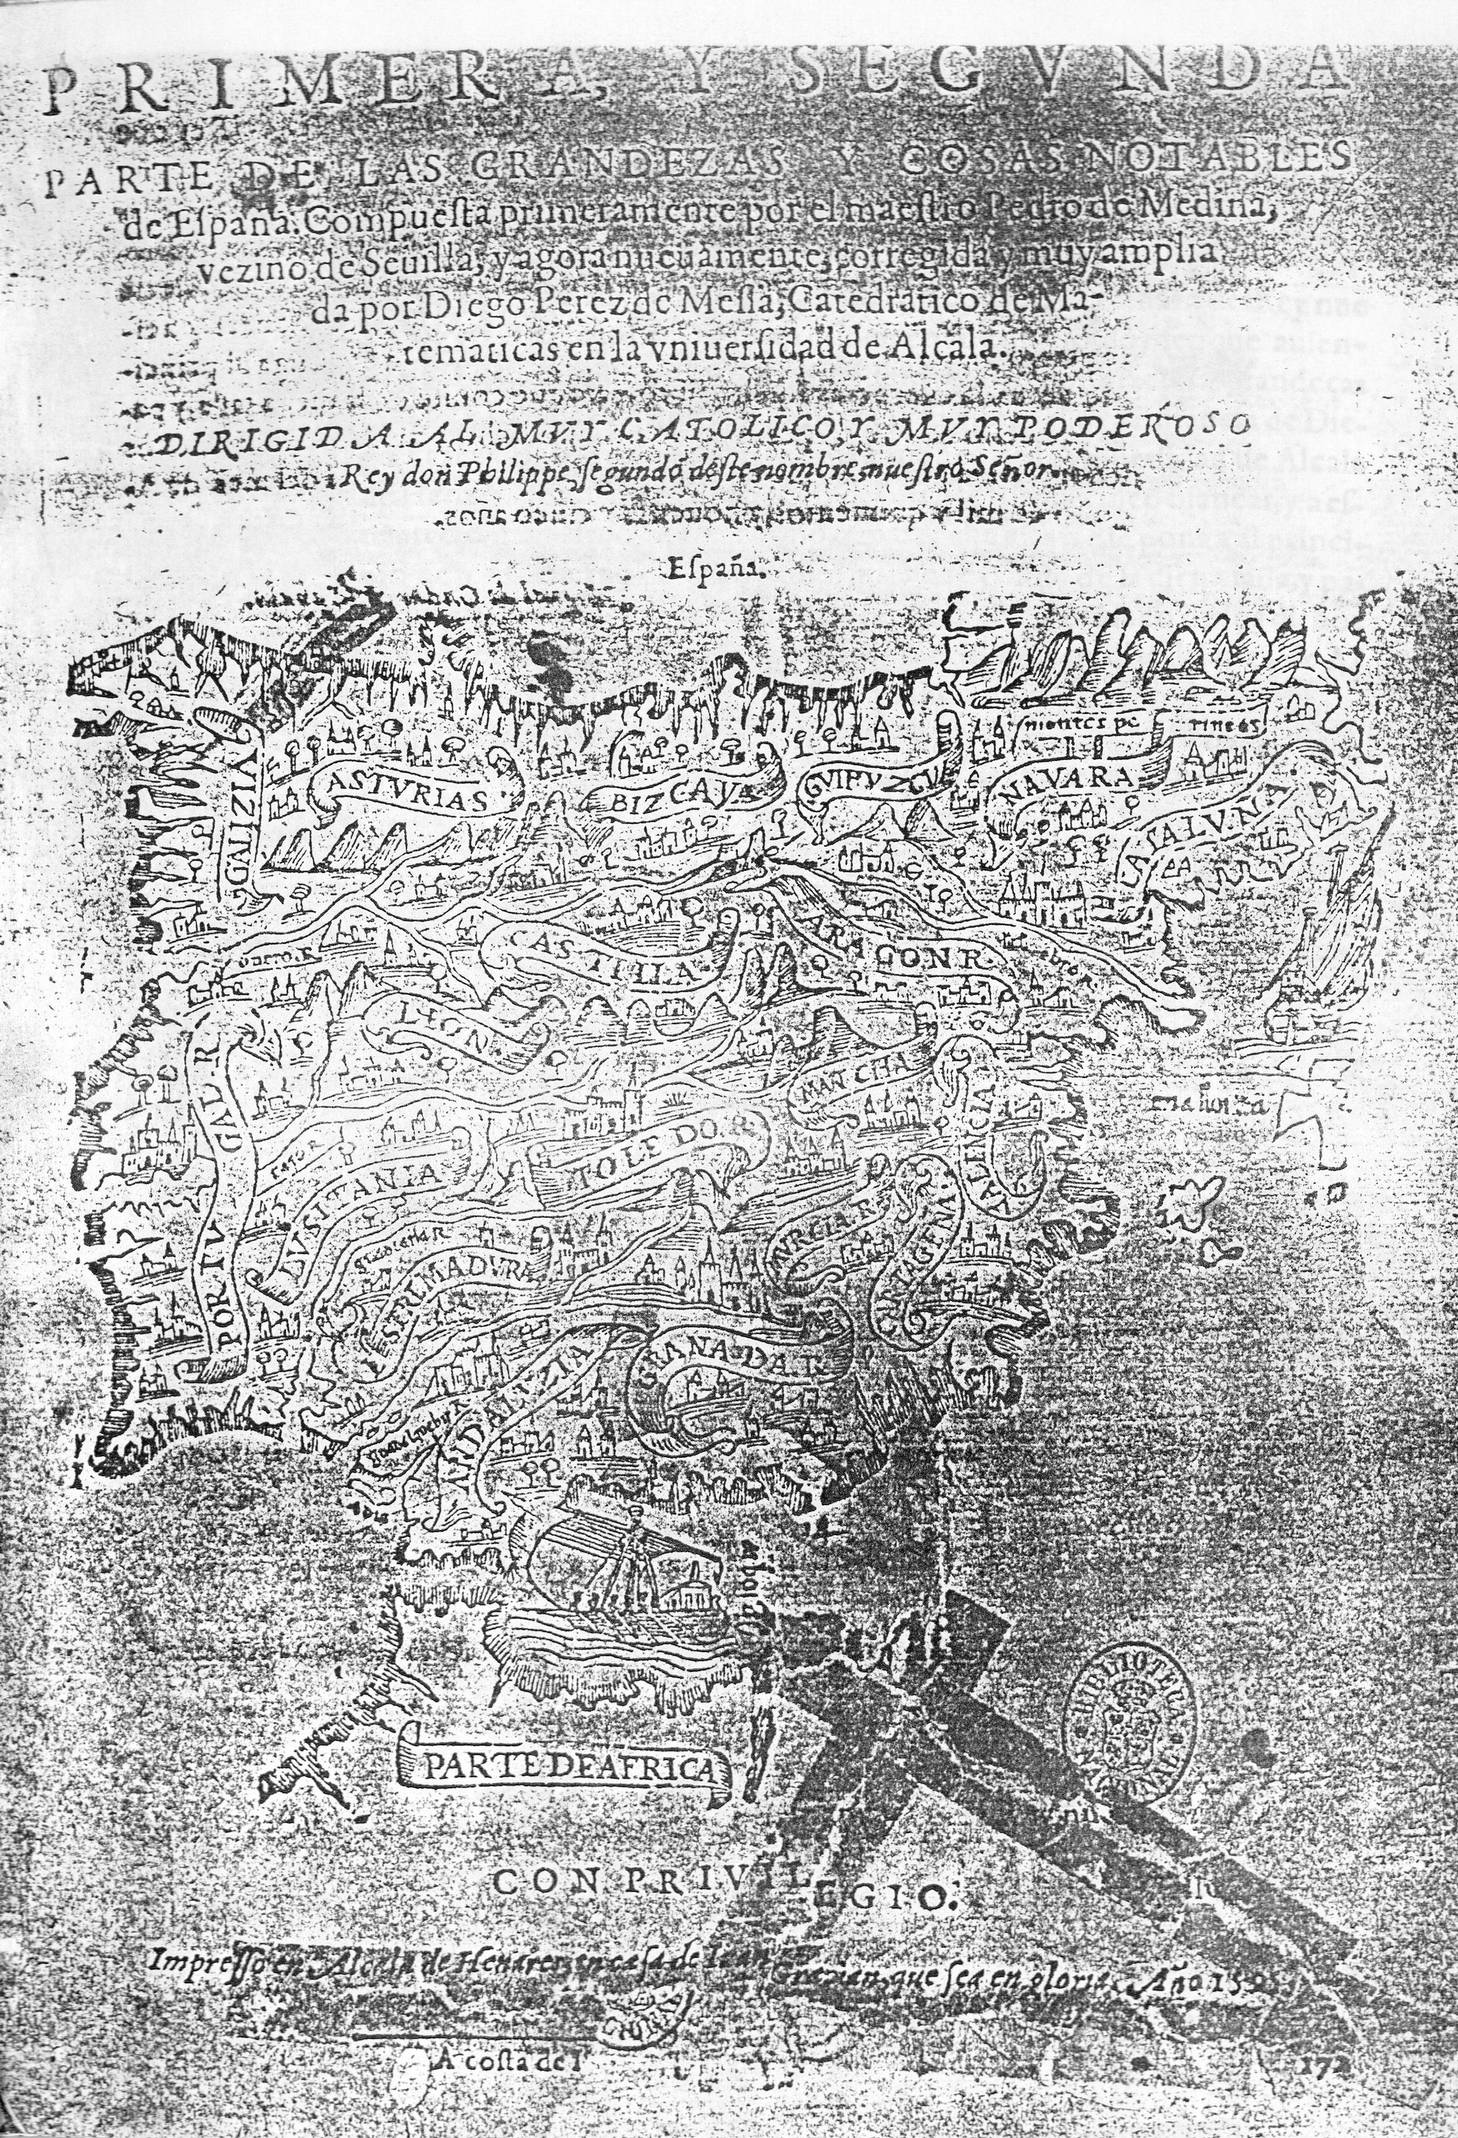 PRIMERA, Y SEGVNDA
PARTE DE LAS GRANDEZAS Y COSAS NOTABLES
de Eſpaña. Compueſta primeramente por el maeſtro Pedro de Medina,
vezino de Seuilla, y agora nueuamente corregida y muy amplia
da por Diego Perez de Meſſa, Catedratico de Ma-
tematicas en la vniuerſidad de Alcala.
DIRIGIDA AL MVY CATOLICO Y MVY PODEROSO
Rey don Philippe, ſegundo deſte nombre nueſtro Señor.
Eſpaña.
montes pe rineos
GALIZIA
ASTVRIAS
BIZCAYA
GVIPVZCV
NAVARA
CASTILLA
ARAGON R
LEON
MANCHA
VALINCIA
PORTVGAL R
TOLEDO R
LVSITANIA
MVRCIA R
CARTAGENA
ESTREMADVRA
GRANADA R
ANDALVZIA
PARTE DE AFRICA
BIBLIOTECA
CON PRIVILEGIO.
Impreſſo en Alcala de Henares en caſa de Iuan Gracian, que ſea en gloria. Año. 1595
A coſta de
172